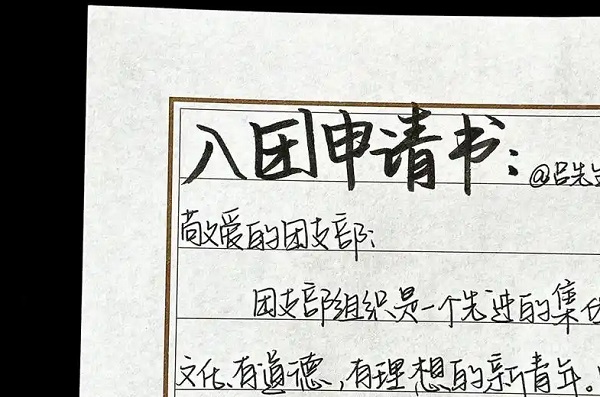 入团申请书:
@吕先生
敬爱的团支部:
团支部组织是一个先进的集体
文化、有道德,有理想的新青年。